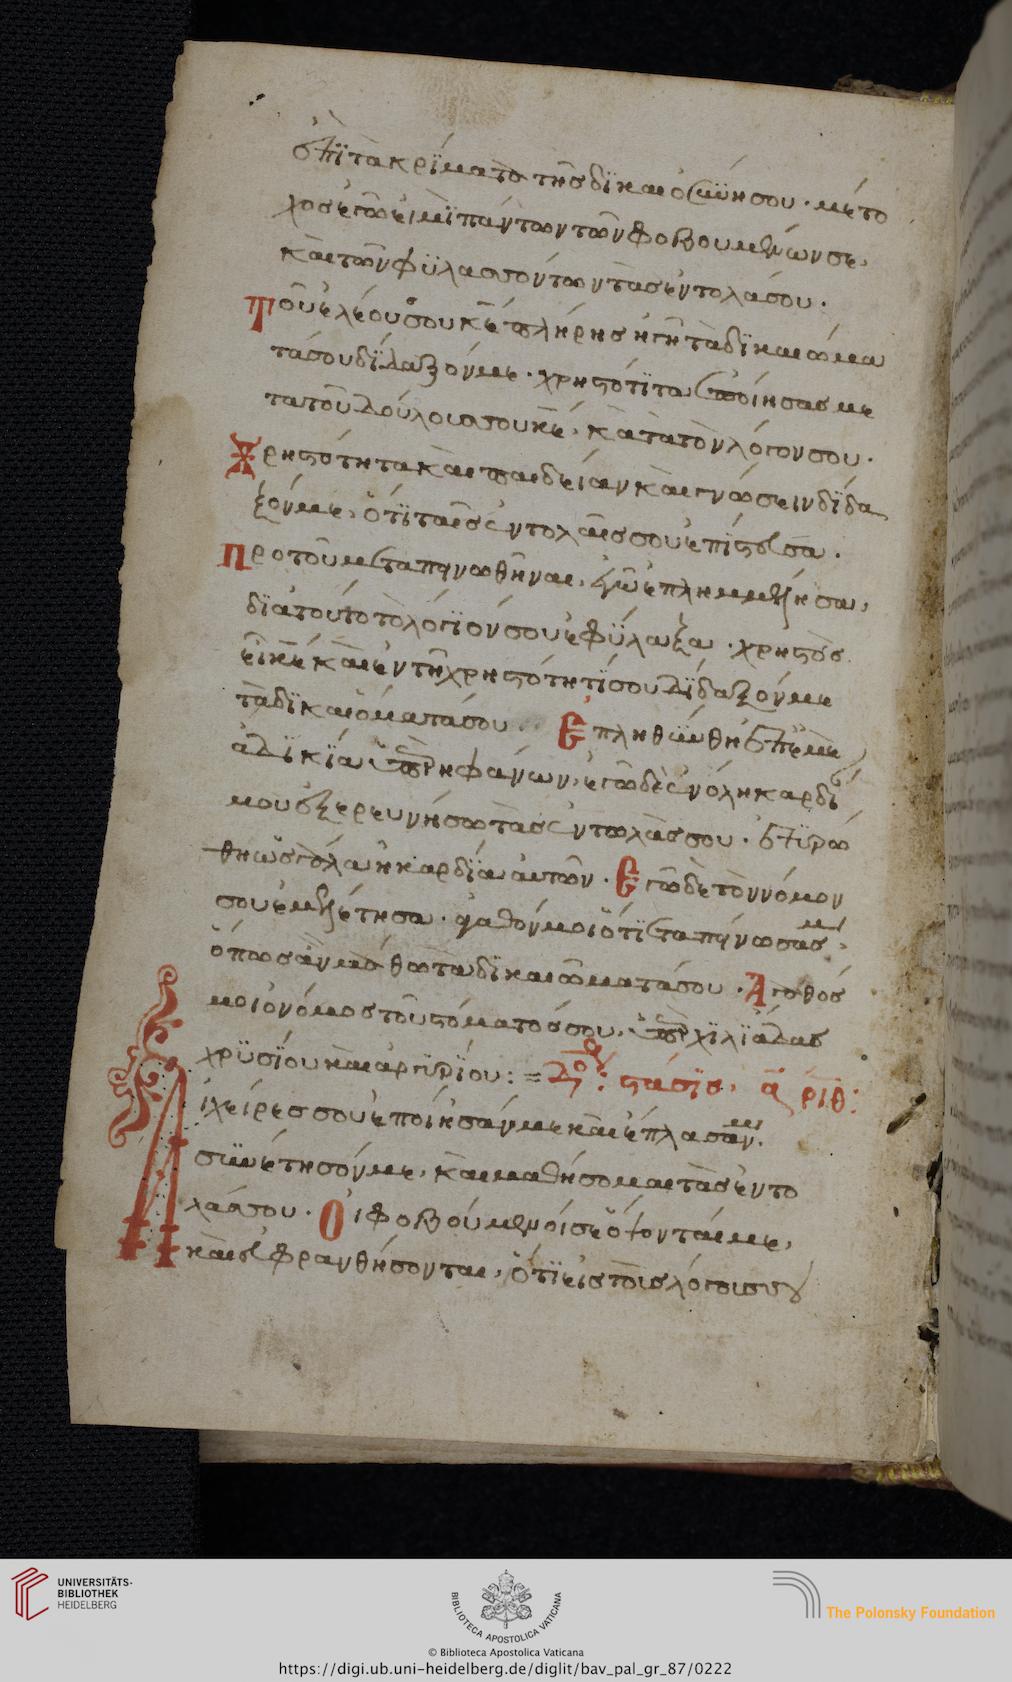 ἐπὶ τὰ κρίματα τῆς δικαιοσύνης σου · μέτο
χος ἐγώ εἰμι πάντων τῶν φοβουμένων σε,
καὶ τῶν φϋλασσόντων τὰς ἐντολάς σου ·
Τοῦ ἐλέους σου κε πλήρης ἡ γῆ τὰ δικαιώμα
τά σου δίδαξόν με · χρηστότϊτα ἐποίησας με
τα τοῦ δούλου σου κε, κατὰ τὸν λόγον σου ·
Χρηστότητα καὶ παιδείαν καὶ γνῶσειν δίδα
ξόν με, ὅτι ταῖς ἐντολαῖς σου ἐπίστευσα ·
Πρὸ τοῦ με ταπεινωθῆναι, ἐγὼ ἐπλημμέλησα,
διὰ τοῦτο τὸ λόγιόν σου ἐφύλαξα · χρηστὸς
εἶ κε καὶ ἐν τῇ χρηστότητί σου δίδαξόν με
τὰ δικαιόματά σου · Ἐπληθύνθη ἐπ' ἐμὲ
ἀδικία ὑπερηφάνων, ἐγὼ δὲ ἐν ὅλη καρδί
μου ἐξερευνήσω τὰς ἐντωλάς σου · ἐτϋρώ
θη ὡς γάλα ἡ καρδία αὐτῶν · Ἐγὼ δὲ τὸν νόμον
σου ἐμελέτησα · ἀγαθόν μοι ὅτι ἐταπείνωσάς με,
ὅπως ἂν μάθω τὰ δικαιώματά σου · Ἀγαθός
μοι ὁ νόμος τοῦ στόματός σου, ὑπὲρ χϊλϊάδας
χρϋσίου καὶ ἀργυρίου := Δόξα: στάσϊς, ἀριθ:
Αἱ χεῖρες σου ἐποίησάν με καὶ ἔπλασάν με.
συνέτησόν με, καὶ μαθήσομαι τὰς ἐντο
λάς σου · Οἱ φοβούμενοί σε ὄψονταί με,
καὶ εὐφρανθήσονται, ὅτι εἰς τοὺς λόγους σου
UNIVERSITÄTS-
BIBLIOTHEK
HEIDELBERG
BIBLIOTECA APOSTOLICA VATICANA
The Polonsky Foundation
© Biblioteca Apostolica Vaticana
https://digi.ub.uni-heidelberg.de/diglit/bav_pal_gr_87/0222